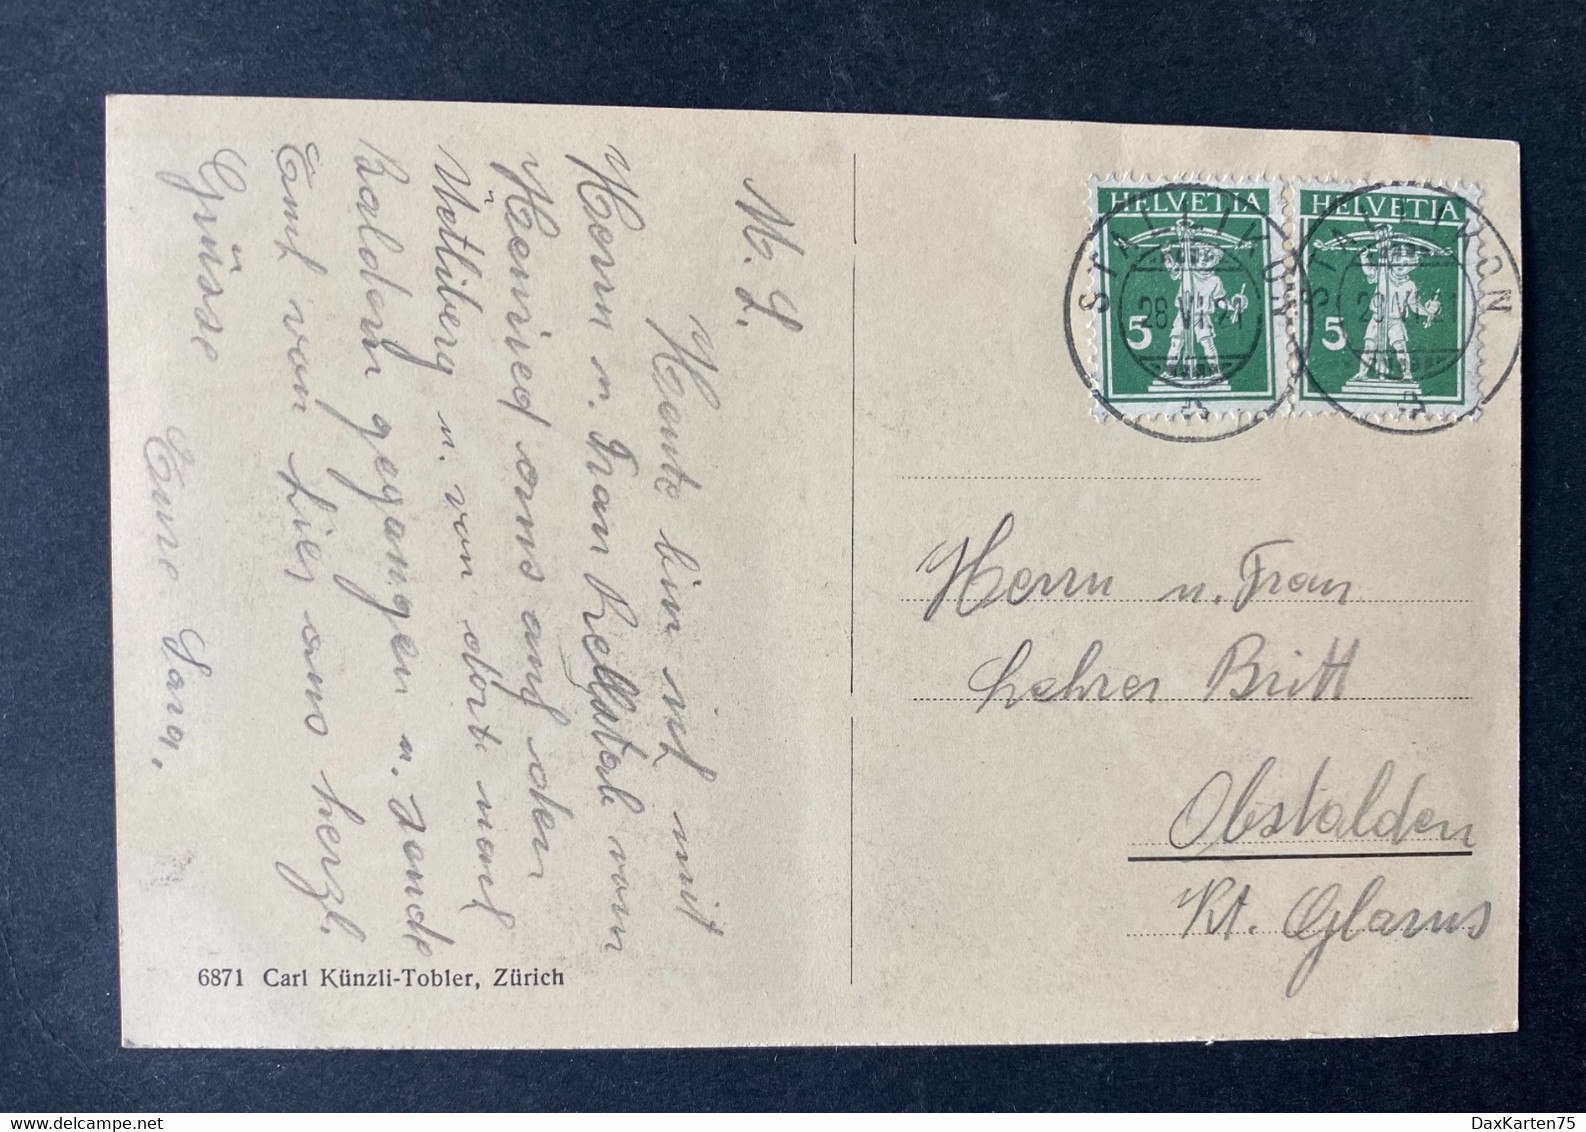 M. L.
Heute bin ich mit
Herrn u. Frau vom
aus auf den
Uetliberg u. von dort nach
Baldern gegangen u. sende
Euch von hier aus herzl.
Grüsse
Eure Sara.
6871 Carl Künzli-Tobler, Zürich
HELVETIA
5
HELVETIA
5
STALLIKON
28.VII.21
STALLIKON
Herrn u. Frau
Lehrer Britt
Obstalden
Kt. Glarus
DaxKarten75